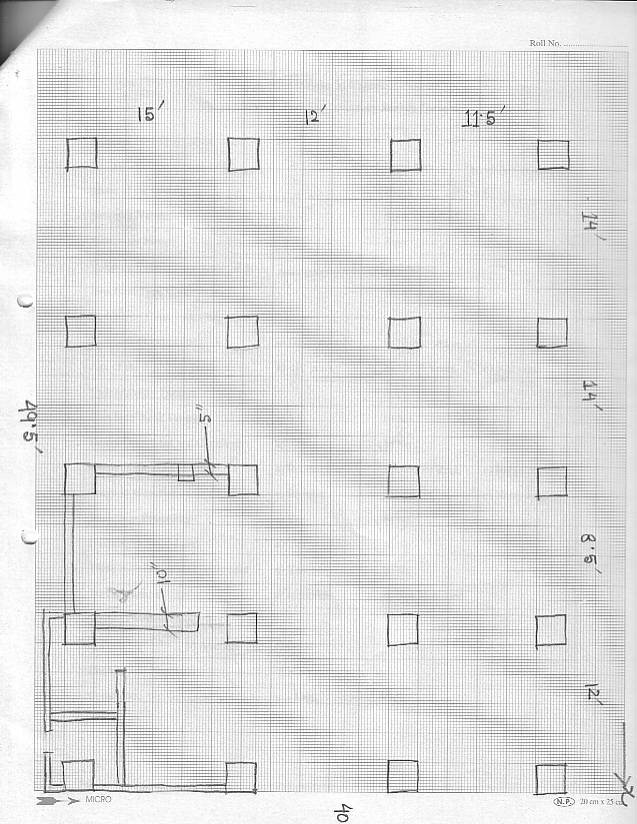 Roll No. ....................
15′
12′
11·5′
14′
14′
49·5′
5″
8·5′
10″
12′
40
MICRO
N.P. 20 cm x 25 cm